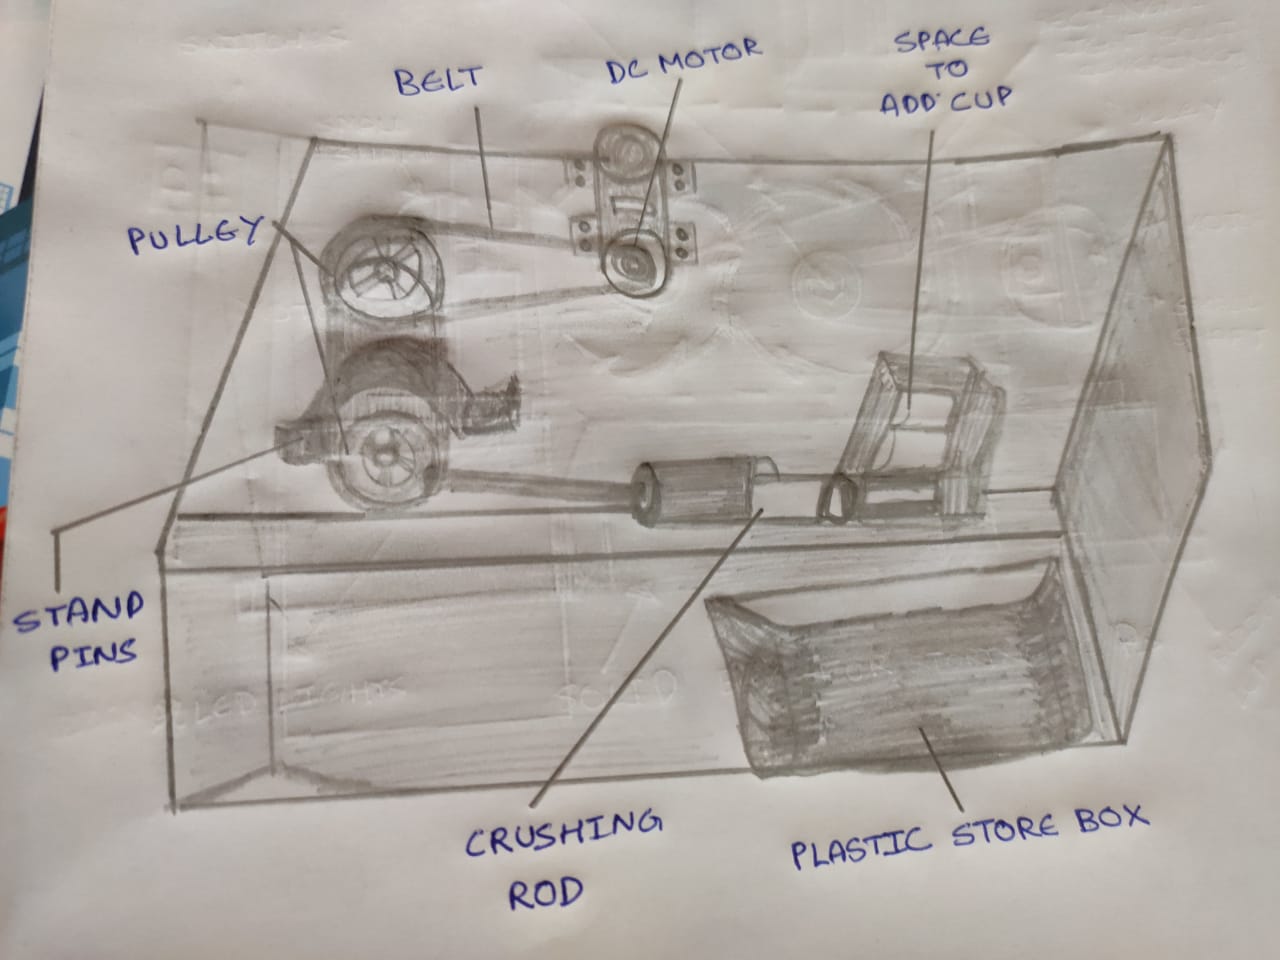 BELT
DC MOTOR
SPACE
TO
ADD CUP
PULLEY
STAND
PINS
CRUSHING
ROD
PLASTIC STORE BOX